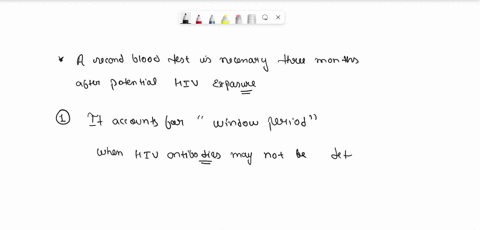 * A second blood test is necessary three months
after potential HIV Exposure
① It accounts for "window period"
when HIV antibodies may not be det